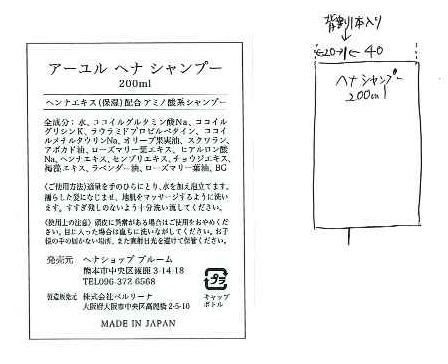 アーユル ヘナ シャンプー
200ml
ヘンナエキス(保湿)配合アミノ酸系シャンプー
全成分:水、ココイルグルタミン酸Na、ココイル
グリシンK、ラウラミドプロピルベタイン、ココイ
ルメチルタウリンNa、オリーブ果実油、スクワラン、
アボカド油、ローズマリー葉エキス、ヒアルロン酸
Na、ヘンナエキス、センブリエキス、チョウジエキス、
褐藻エキス、ラベンダー油、ローズマリー葉油、BG
〈ご使用方法〉適量を手のひらにとり、水を加え泡立てます。
濡らした髪になじませ、地肌をマッサージするように洗い
ます。すすぎ残しのないよう十分洗い流してください。
〈使用上の注意〉頭皮に異常がある場合はご使用をおやめくだ
さい。目に入った場合は直ちに洗いながしてください。お子
様の手の届かない場所、また直射日光を避けて保管ください。
発売元 ヘナショップ ブルーム
熊本市中央区 3-14-18
TEL096-372-6568
製造販売元 株式会社ベルリーナ
大阪府大阪市中央区高麗橋 2-5-10
キャップ
ボトル
MADE IN JAPAN
背割り1本入り
←20→←40
ヘナシャンプー
200ml